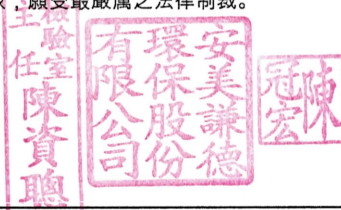 願受最嚴厲之法律制裁。
檢驗室
主任陳資聰
安美謙德
環保股份
有限公司
陳
冠宏